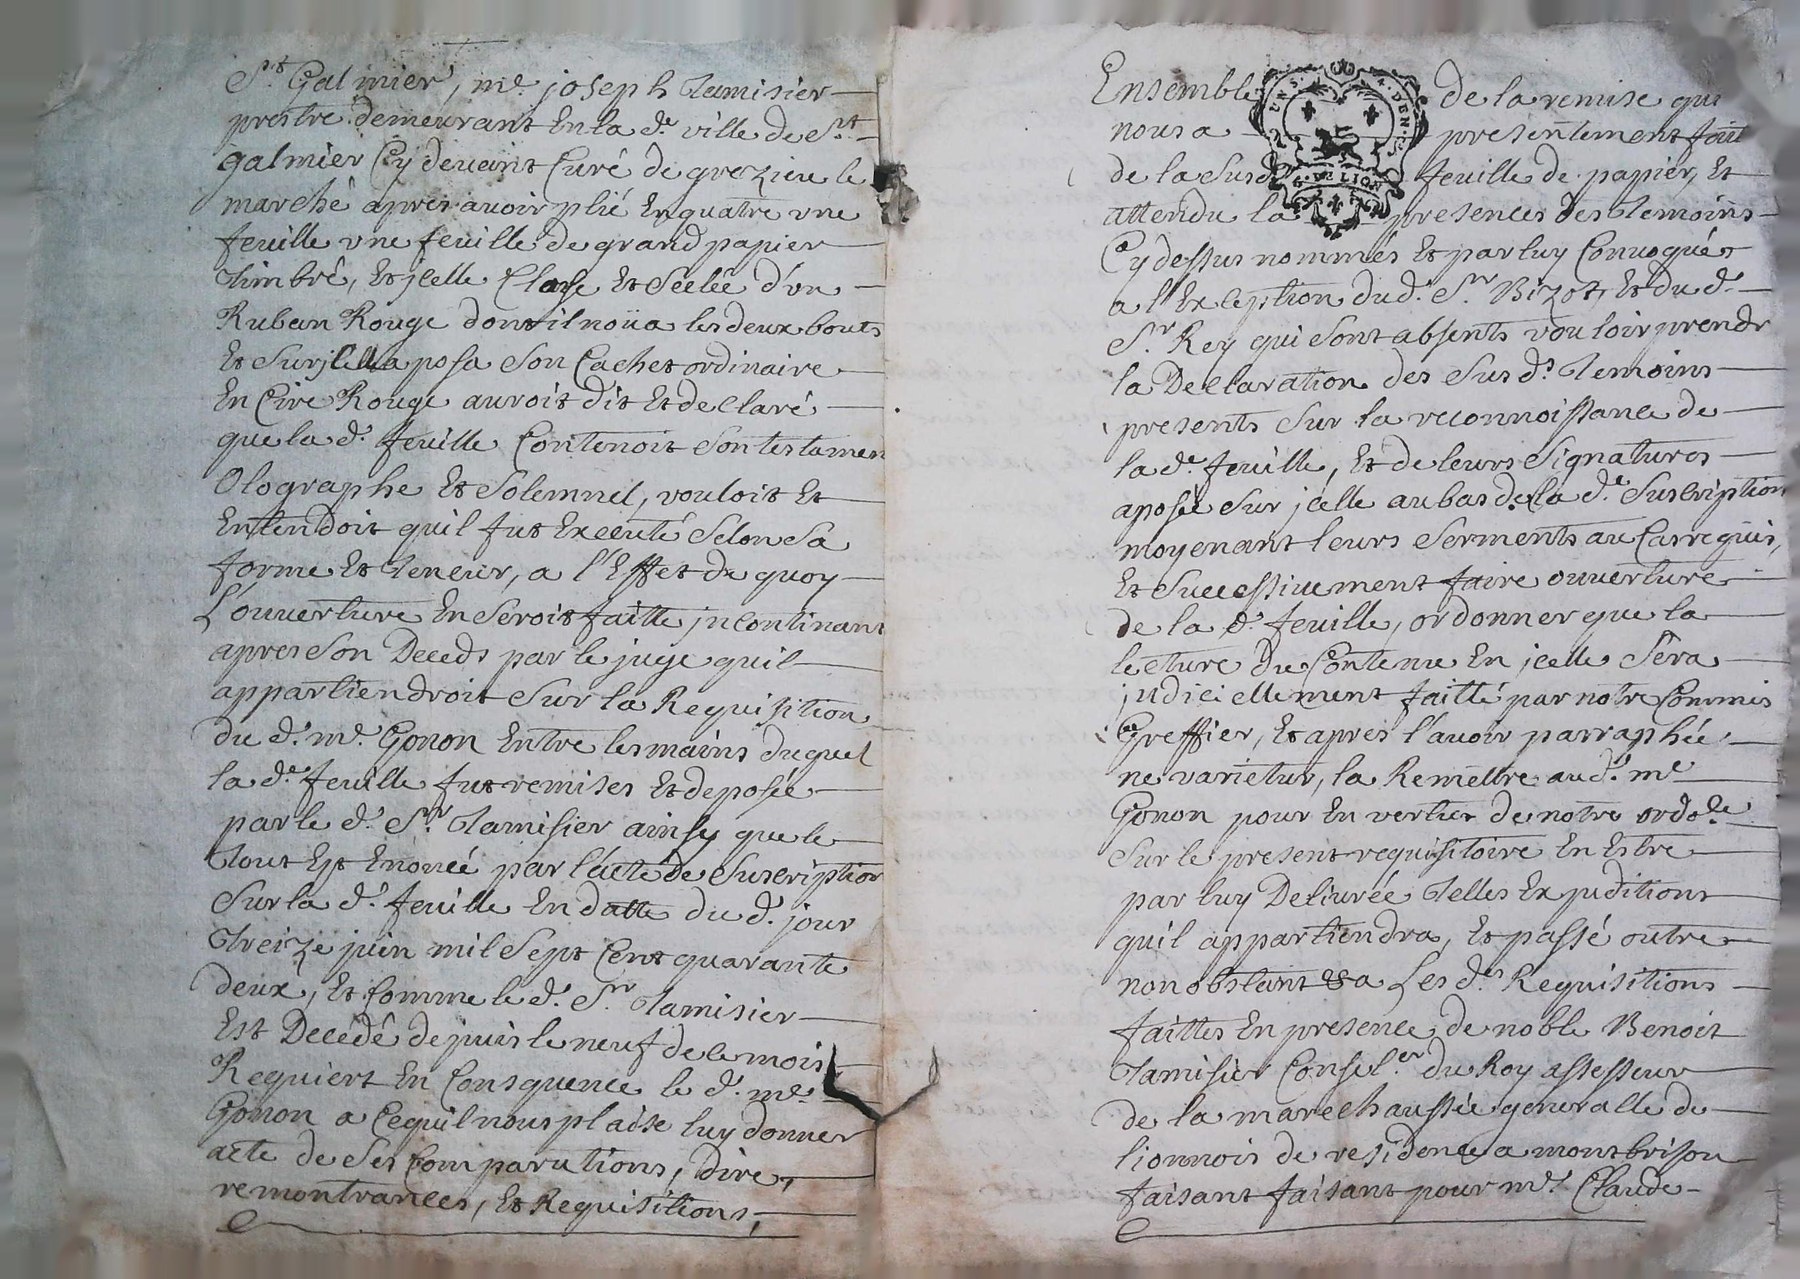 St. Galmier, me. joseph Tamisier
prestre demeurant En la de. ville de St
galmier Cy devant Curé de grezieu le
marché apres avoir plié En quatre une
feuille une feuille de grand papier
Timbré, Et jcelle Close Et Scelée d'un
Ruban Rouge dont il noüa les deux bouts
Et Sur jcelle aposa Son Cachet ordinaire
En Cire Rouge auroit dit Et declaré
que la de. feuille Contenoit Son testamen
Olographe Et Solemnel, vouloit Et
Entendoit quil fut Executé Selon Sa
forme Et Teneur, a l'Effet de quoy
L'ouverture En Seroit faitte jncontinant
apres Son Deceds par le juge quil
appartiendroit Sur la Requisition
du d. me. Gonon Entre les mains duquel
la de. feuille fut remises Et deposée
par le d. Sr. Tamisier ainsy que le
Tout Est Enoncé par l'acte de Suscription
Sur la d. feuille En datte du d. jour
Treize juin mil Sept Cent quarante
deux, Et Comme le d. Sr Tamisier
Est Decédé depuis le neuf de ce mois
Requiert En Consquence le d. me.
Gonon a Cequil nous plaise luy donner
acte de Ses Comparutions, dire,
remontrances, Et Requisitions,
Ensemble de la remise qui
nous a presentement fait
de la Susde feuille de papier, Et
attendu la presences des Temoins
Cy dessus nommés Et par luy Convoqués
a l'Exception dud. Sr Bizot, Et du d.
Sr Rey qui Sont absents vouloir prendr
la Declaration des Susds Temoins
presents Sur la reconnoissance de
la de. feuille, Et de leurs Signatures
aposée Sur jcelle au bas de la de. Suscription
moyenant leurs Serments au Cas requis,
Et Successivement faire ouverture
de la d. feuille, ordonner que la
lecture du Contenu En jcelle Sera
judiciellement faitte par notre Commis
Greffier, Et apres l'avoir parraphée
ne varietur, la Remettre au d. me
Gonon pour En vertu de notre ordoce
Sur le present requisitoire En Estre
par luy Delivrée Telles Expeditions
quil appartiendra, Et passé outre
nonobstant &a Les des Requisitions
faittes En presence de noble Benoit
Tamisier Conseler du Roy assesseur
de la marechaussée generalle de
lionnois de residence a montbrison
faisant faisant pour me. Claude
GEN. DE LION